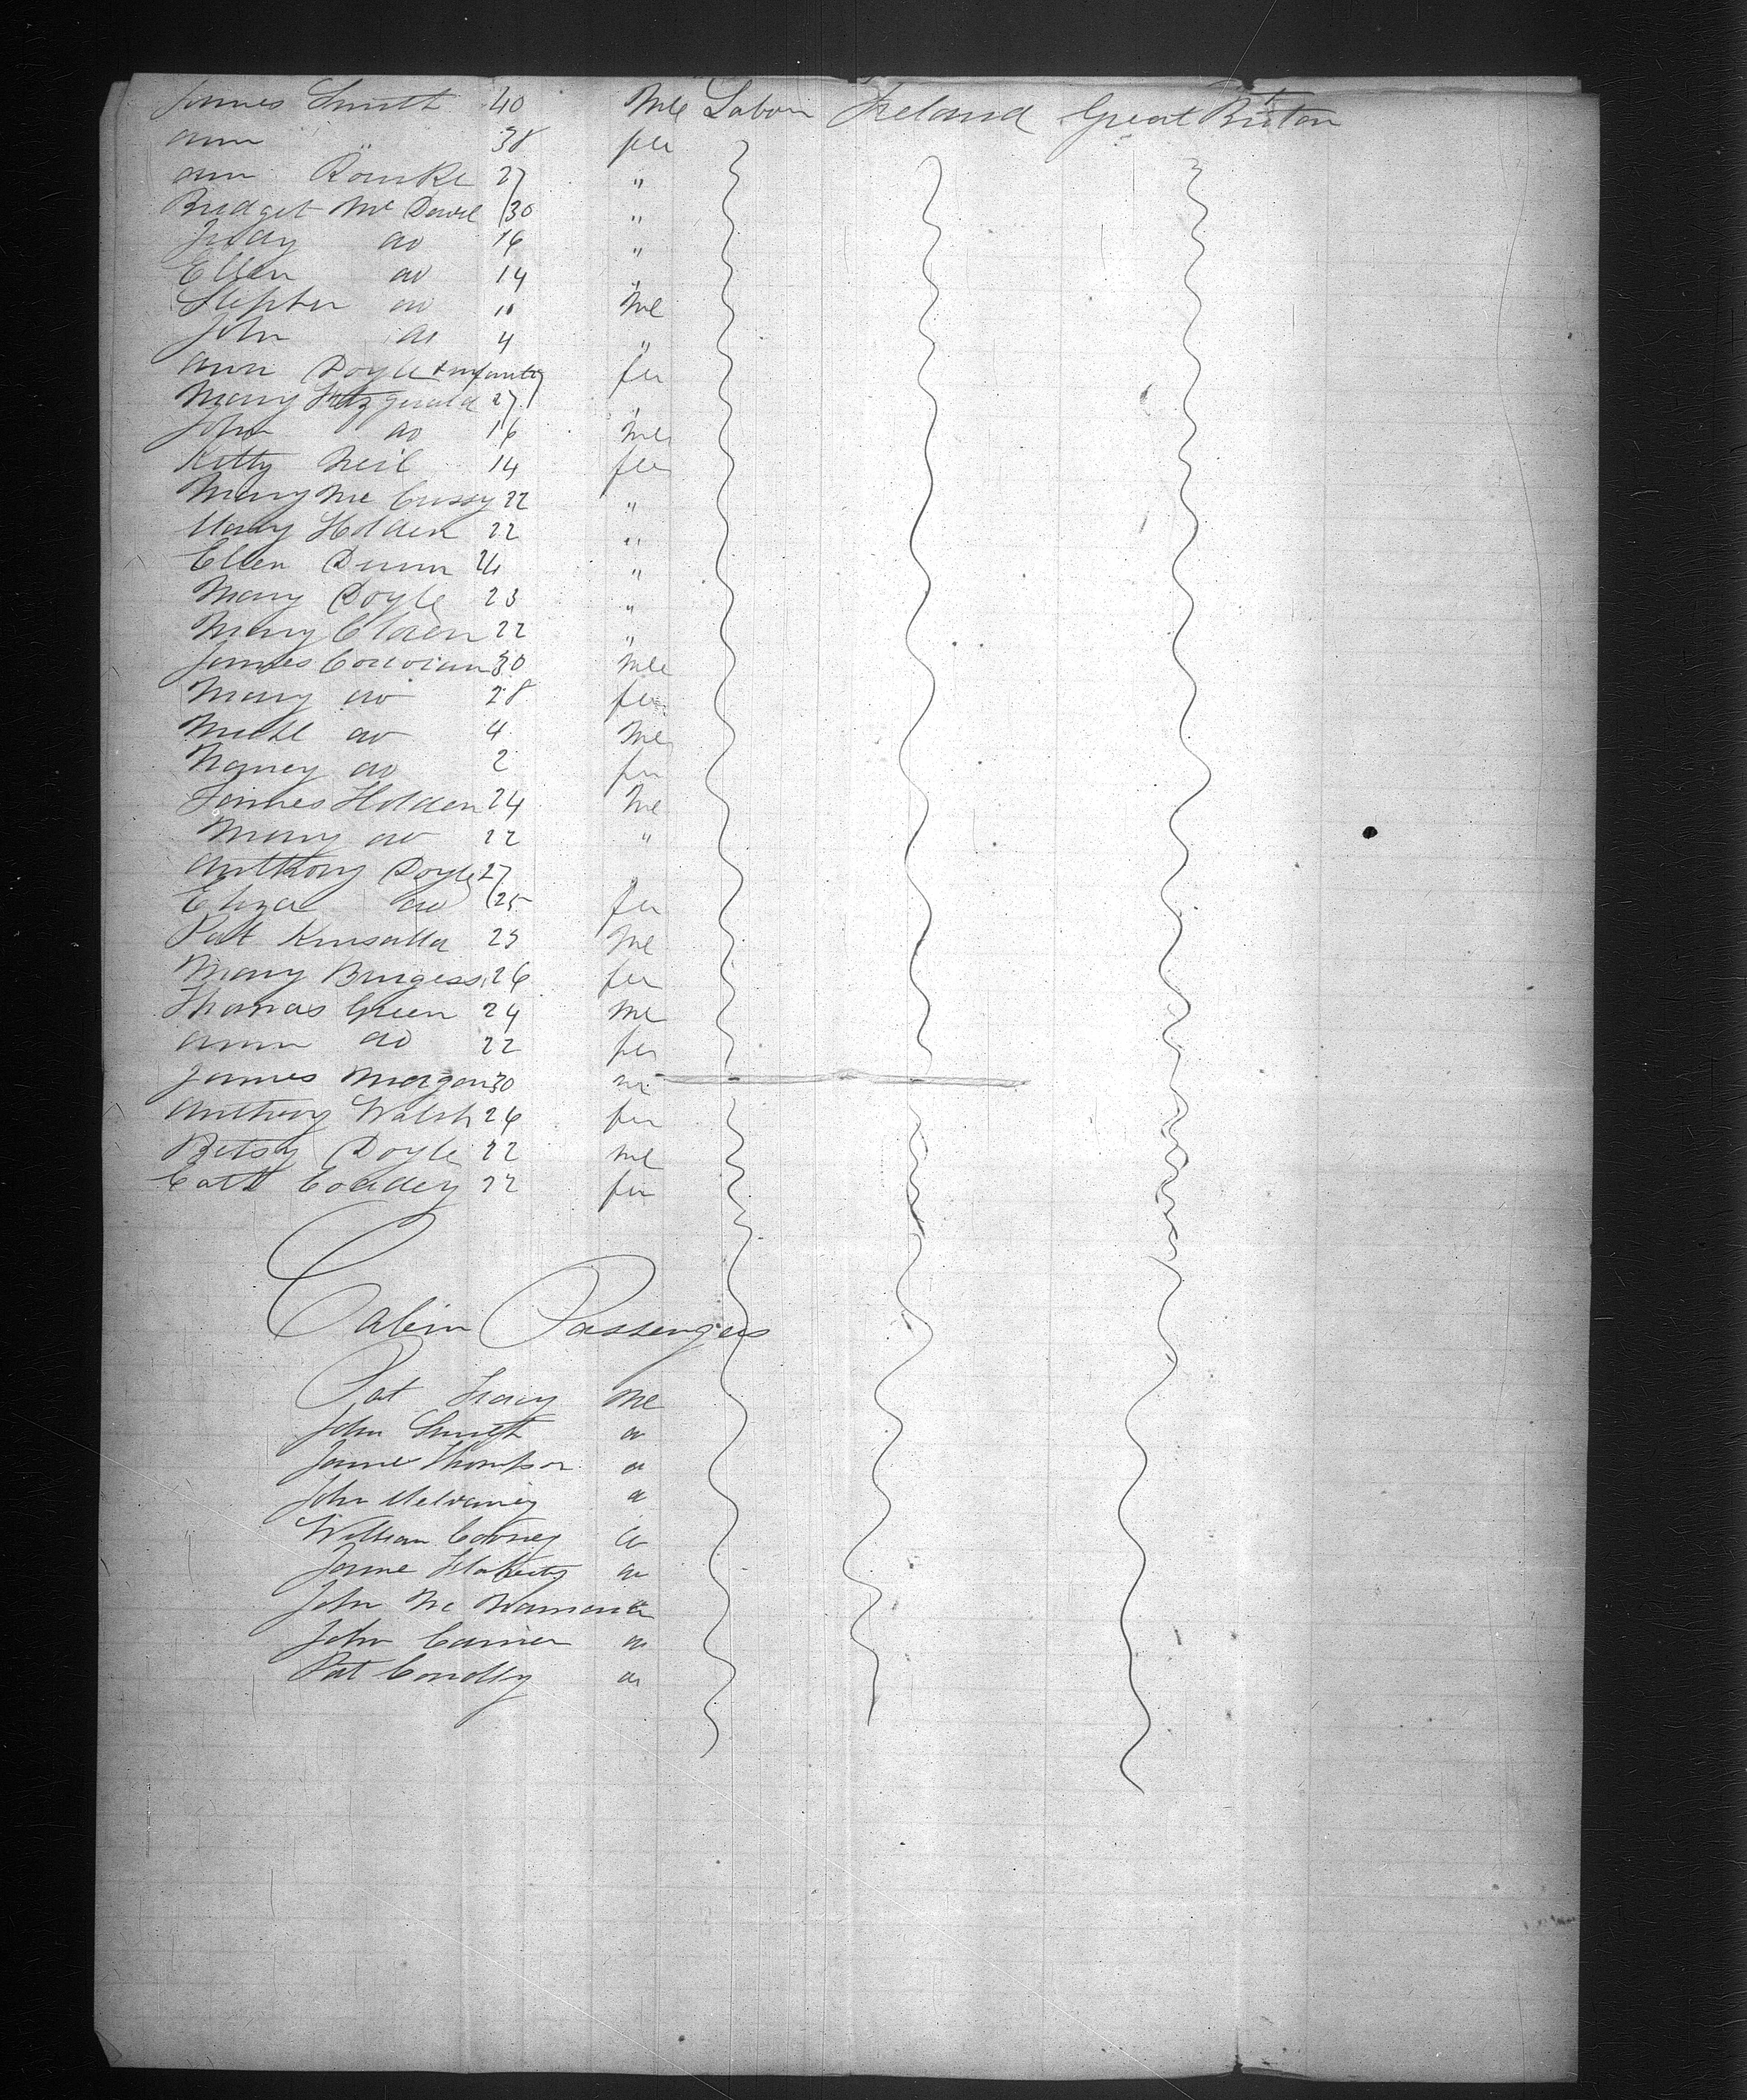 James Smith 40 Me Labour Ireland Great Briton
ann " 38 fe
ann Rourke 27 "
Bridget Mc 30 "
Judy do 16 "
Ellen do 14 "
Stephen do 11 Me
John do 4 "
Ann Doyle & infant 27 fe
Mary Fitzgerald 27 "
John do 16 Me
Kitty Neil 14 fe
Mary Mc 22 "
Mary Holden 22 "
Ellen Dunn "
Mary Doyle 23 "
Mary 22 "
James 30 Me
Mary do 28 fe
Michl do 4 Me
Nancy do 2 fe
James Holden 24 Me
Mary do 22 "
Anthony Doyle 27 "
Eliza do 25 fe
Pat Kinsalla 25 Me
Mary Burgess 26 fe
Thomas Green 24 Me
ann do 22 fe
James Morgan 30 m
Anthony Walsh 26 fe
Betsy Doyle 22 Me
Cath 22 fe
Cabin Passengers
Pat Tracy Me
John Smith do
James Thompson do
John do
William do
Jame do
John Mc Namara do
John do
Pat Conolly do